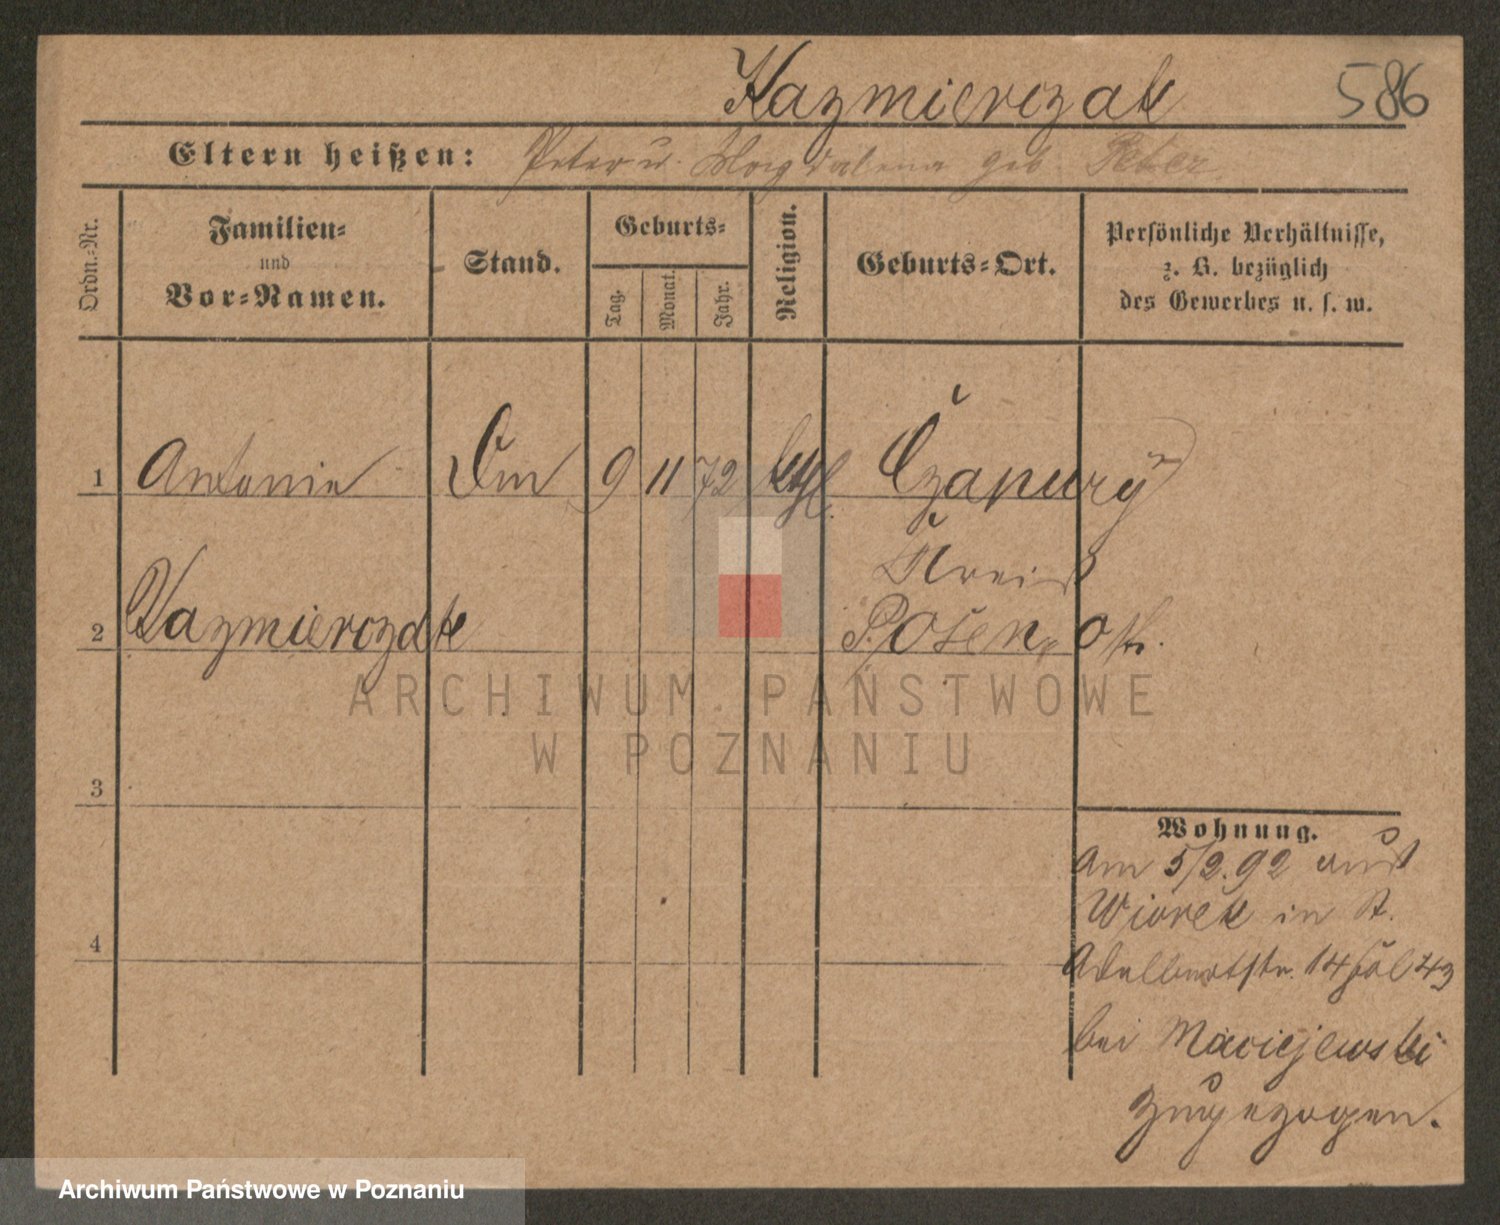 Kazmierczak 586
Eltern heißen: Peter u. Magdalena geb. Peter
Ordn.-Nr.
Familien-
und
Vor-Namen.
Stand.
Geburts-
Tag.
Monat.
Jahr.
Religion.
Geburts-Ort.
Persönliche Verhältnisse,
z. B. bezüglich
des Gewerbes u. s. w.
1 Antonie 9 11 72 kthl. Czapury
Kreis
2 Kazmierczak Posen Ost.
3
Wohnung.
am 5/2.92 aus
Wiorek in St.
4
Adalbertstr. 14
bei Maciejewski
zugezogen.
ARCHIWUM PAŃSTWOWE
W POZNANIU
Archiwum Państwowe w Poznaniu